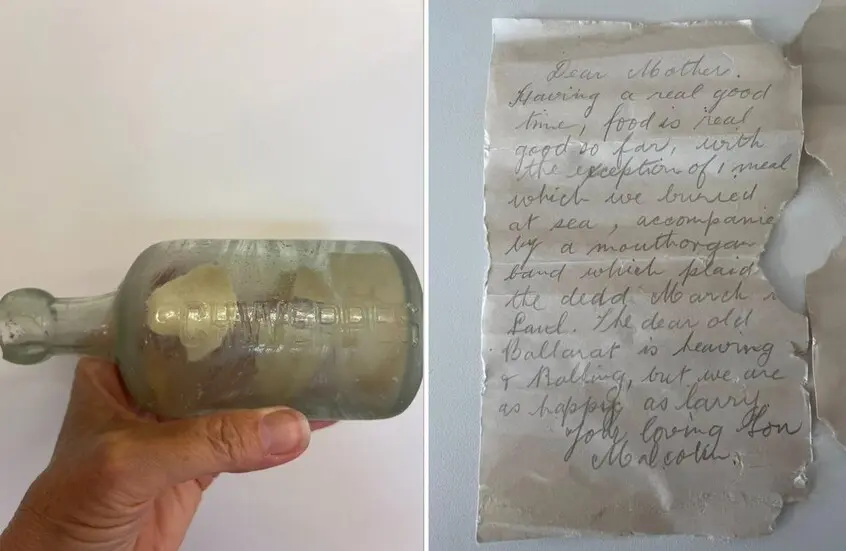 Dear Mother.
Having a real good
time, food is real
good so far, with
the exception of 1 meal
which we buried
at sea, accompanie
by a mouthorgan
band which plaid
the dedd March
Saul. The dear old
Ballarat is heaving
& Rolling, but we are
as happy as larry
Your loving Son
Malcolm.